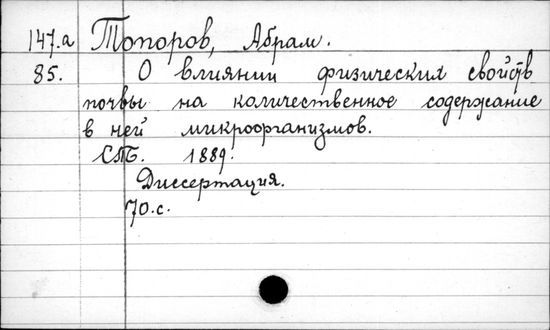 147.а Топоров, Абрам.
85. О влиянии физических свойств
почвы на количественное содержание
в ней микроорганизмов.
СПБ. 1889.
Диссертация.
70.с.